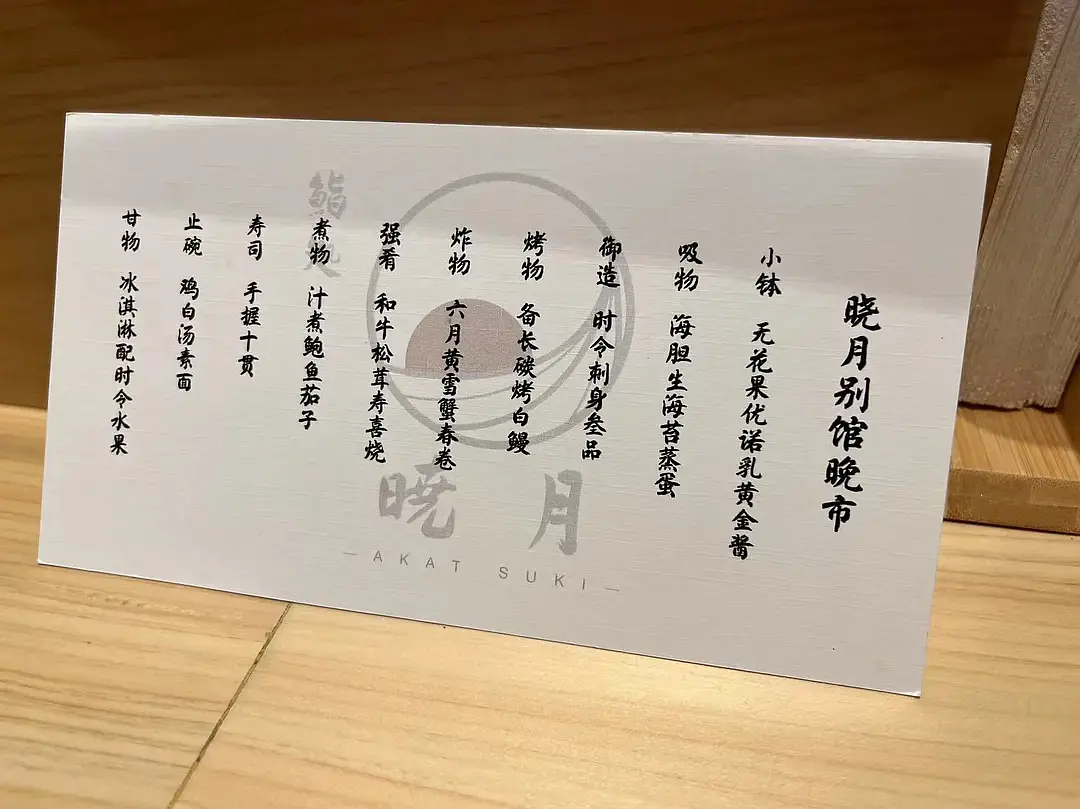 晓月别馆晚市
小钵 无花果优诺乳黄金酱
吸物 海胆生海苔蒸蛋
御造 时令刺身叁品
烤物 备长碳烤白鳗
炸物 六月黄雪蟹春卷
强肴 和牛松茸寿喜烧
煮物 汁煮鲍鱼茄子
寿司 手握十贯
止碗 鸡白汤素面
甘物 冰淇淋配时令水果
鮨处
晓月
AKAT SUKI